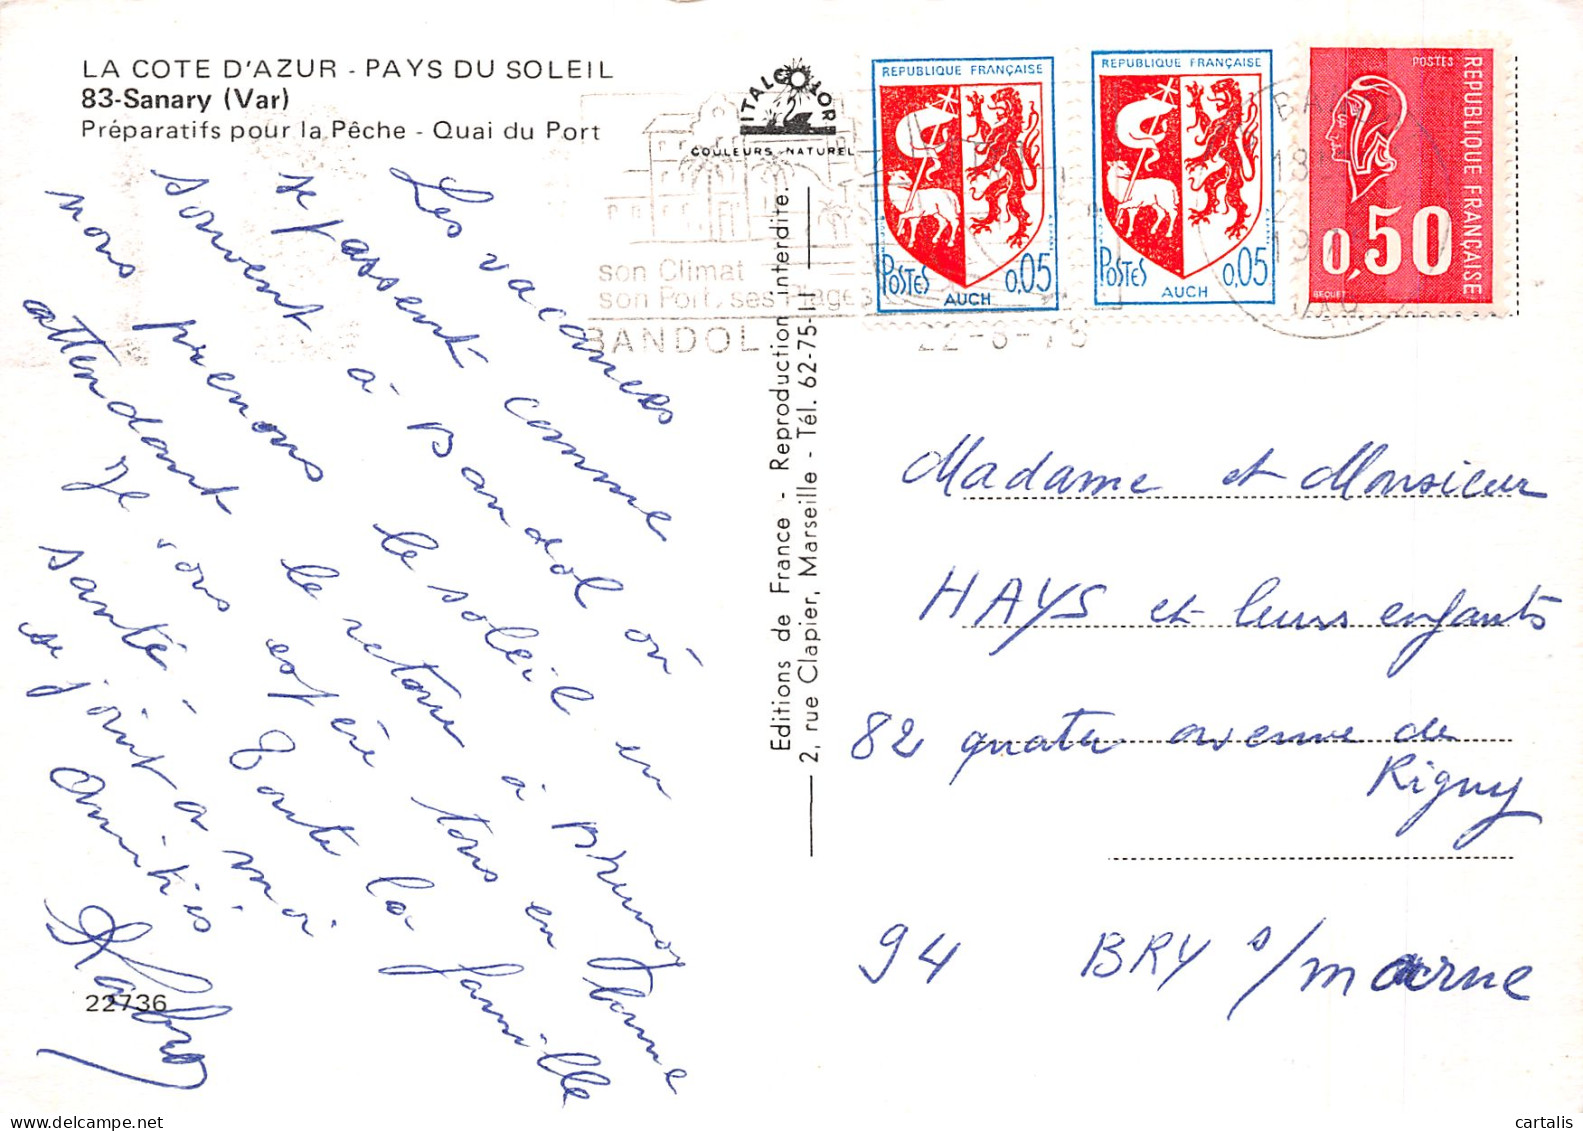 LA COTE D'AZUR - PAYS DU SOLEIL
83-Sanary (Var)
Préparatifs pour la Pêche - Quai du Port
ITALCOLOR
COULEURS NATUREL
son Climat
son Port, ses Plages
BANDOL
22-8-75
REPUBLIQUE FRANÇAISE
POSTES
0,05
AUCH
REPUBLIQUE FRANÇAISE
POSTES
0,05
AUCH
POSTES
REPUBLIQUE FRANÇAISE
0,50
BEQUET
BA
18
2
19
VAR
Les vacances
se passent comme
souvent à Bandol où
nous prenons le soleil en
attendant le retour à
Je vous espère tous en bonne
santé. Toute la famille
se joint à moi
Amitiés
22736
Editions de France - Reproduction interdite.
2, rue Clapier, Marseille - Tél. 62-75-11
Madame et Monsieur
HAYS et leurs enfants
82 quater avenue de
Rigny
94 BRY s/marne
cartalis